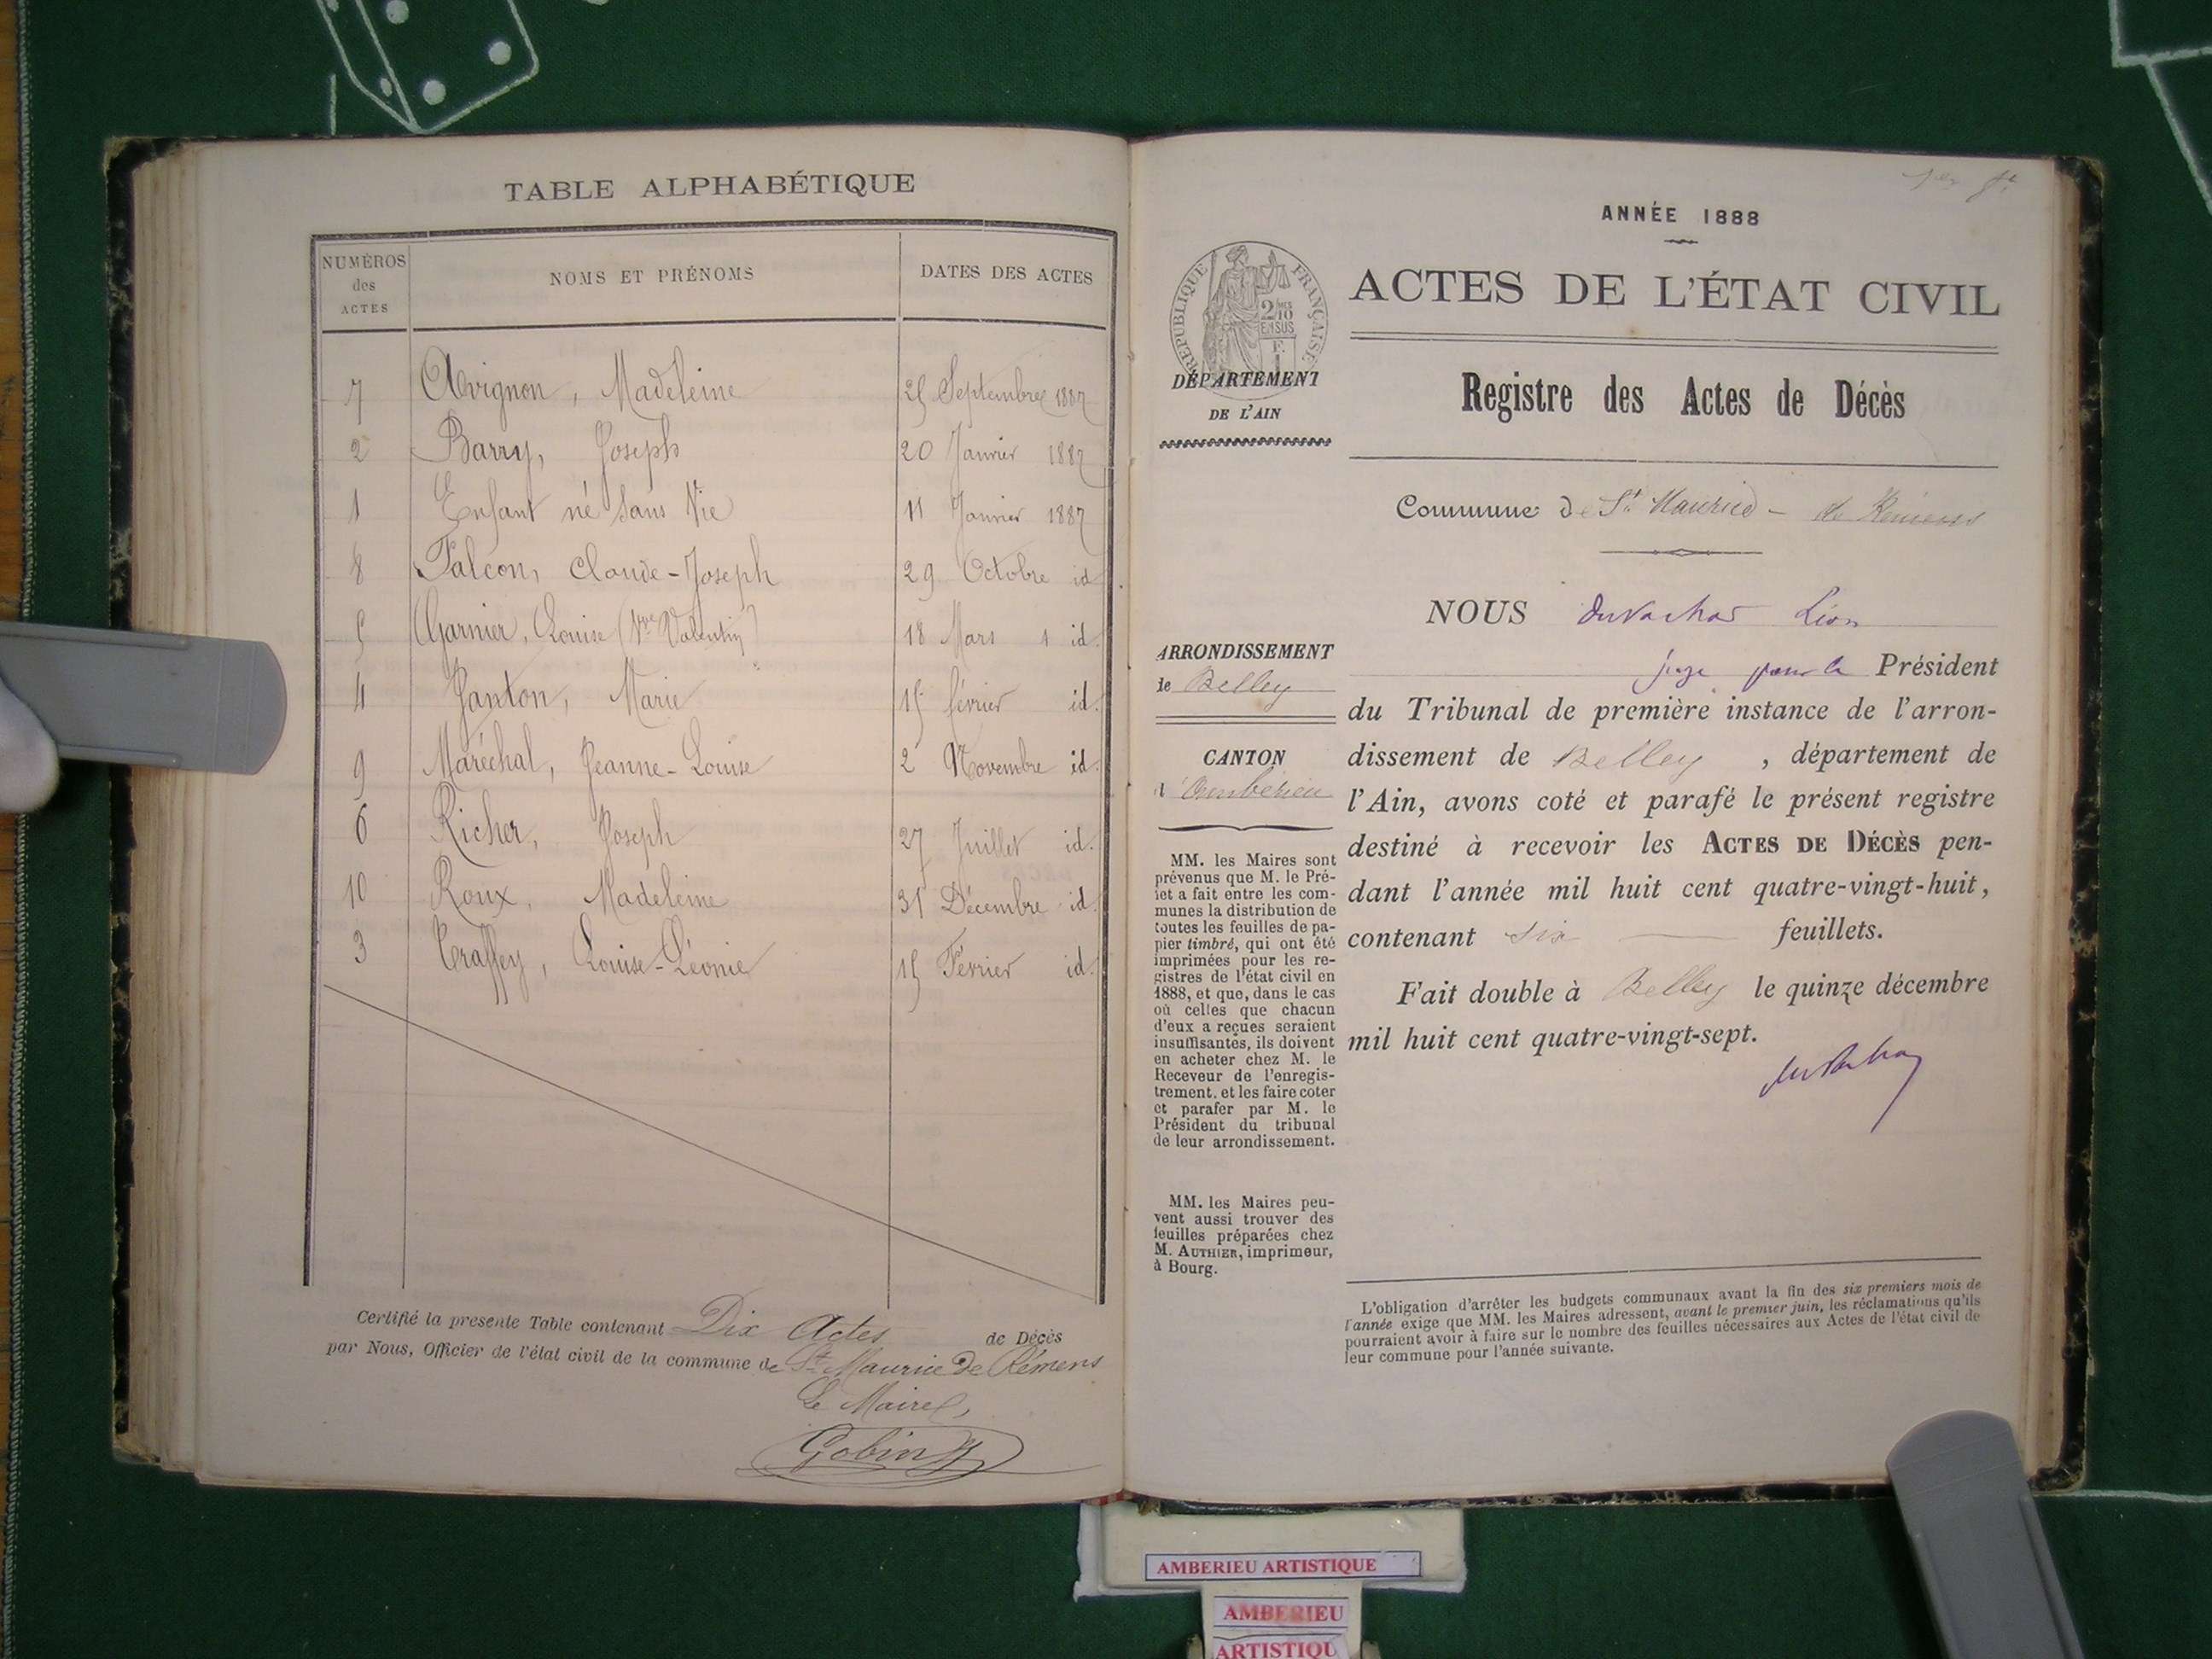 TABLE ALPHABÉTIQUE
NUMÉROS des ACTES NOMS ET PRÉNOMS DATES DES ACTES
7 Avignon, Madeleine 25 Septembre 1887
2 Barry, Joseph 20 Janvier 1887
1 Enfant né sans Vie 11 Janvier 1887
8 Falcon, Claude-Joseph 29 Octobre id.
5 Garnier, Louise (Vve Valentin) 18 Mars id.
4 Janton, Marie 15 février id.
9 Maréchal, Jeanne-Louise 2 Novembre id.
6 Richer, Joseph 27 Juillet id.
10 Roux, Madeleine 31 Décembre id.
3 Traffey, Louise-Léonie 15 Février id.
Certifié la présente Table contenant Dix Actes de Décès
par Nous, Officier de l'état civil de la commune de St Maurice de Rémens
Le Maire,
Gobin
ANNÉE 1888
ACTES DE L'ÉTAT CIVIL
Registre des Actes de Décès
Commune de St Maurice-de Rémens
NOUS Léon
juge pour le Président
du Tribunal de première instance de l'arron-
dissement de Belley, département de
l'Ain, avons coté et parafé le présent registre
destiné à recevoir les ACTES DE DÉCÈS pen-
dant l'année mil huit cent quatre-vingt-huit,
contenant six feuillets.
Fait double à Belley le quinze décembre
mil huit cent quatre-vingt-sept.
L'obligation d'arrêter les budgets communaux avant la fin des six premiers mois de
l'année exige que MM. les Maires adressent, avant le premier juin, les réclamations qu'ils
pourraient avoir à faire sur le nombre des feuilles nécessaires aux Actes de l'état civil de
leur commune pour l'année suivante.
RÉPUBLIQUE FRANÇAISE
DÉPARTEMENT
DE L'AIN
ARRONDISSEMENT
de Belley
CANTON
d'Ambérieu
MM. les Maires sont
prévenus que M. le Pré-
fet a fait entre les com-
munes la distribution de
toutes les feuilles de pa-
pier timbré, qui ont été
imprimées pour les re-
gistres de l'état civil en
1888, et que, dans le cas
où celles que chacun
d'eux a reçues seraient
insuffisantes, ils doivent
en acheter chez M. le
Receveur de l'enregis-
trement, et les faire coter
et parafer par M. le
Président du tribunal
de leur arrondissement.
MM. les Maires peu-
vent aussi trouver des
feuilles préparées chez
M. AUTHIER, imprimeur,
à Bourg.
AMBERIEU ARTISTIQUE
AMBERIEU
ARTISTIQU